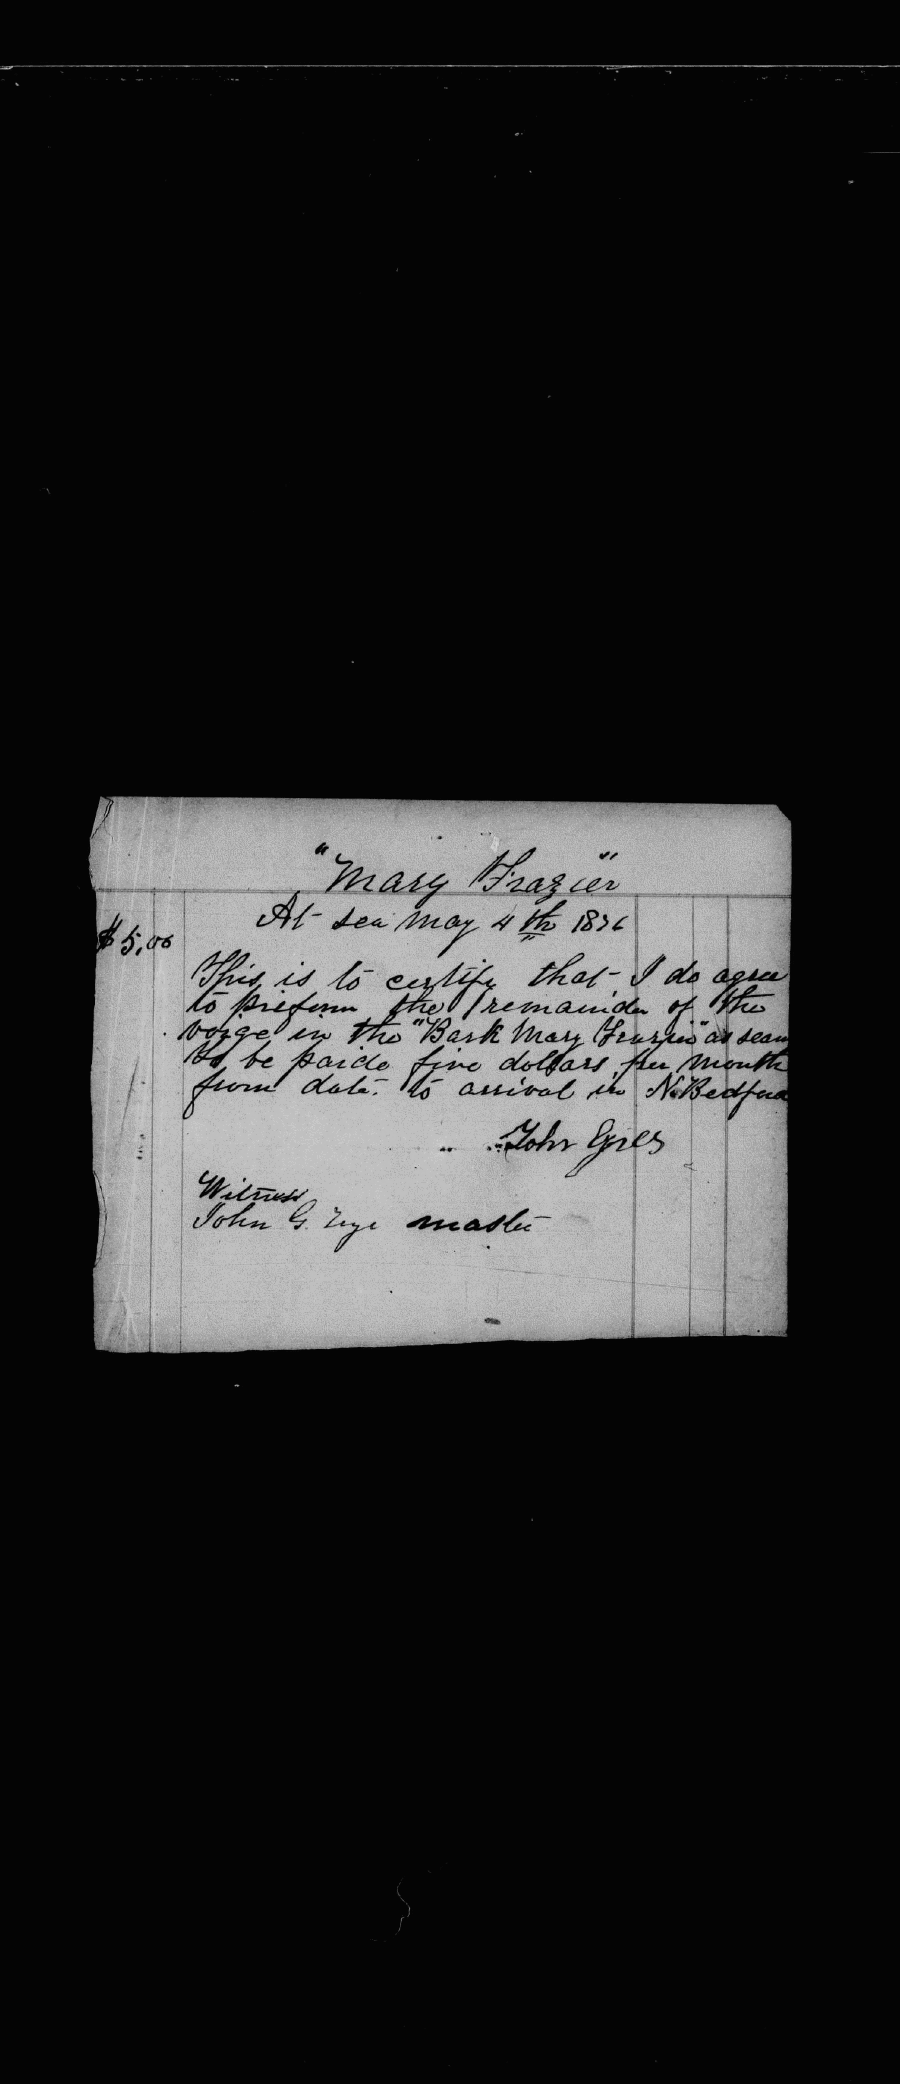 "Mary Frazier"
At sea May 4th 1876
$5,00
This is to certify that I do agree
to preform the remainder of the
voige in the "Bark Mary Frazier" as seam
to be paide five dollars per month
from date. to arrival in N. Bedford
John
Witness
John G. Nye master